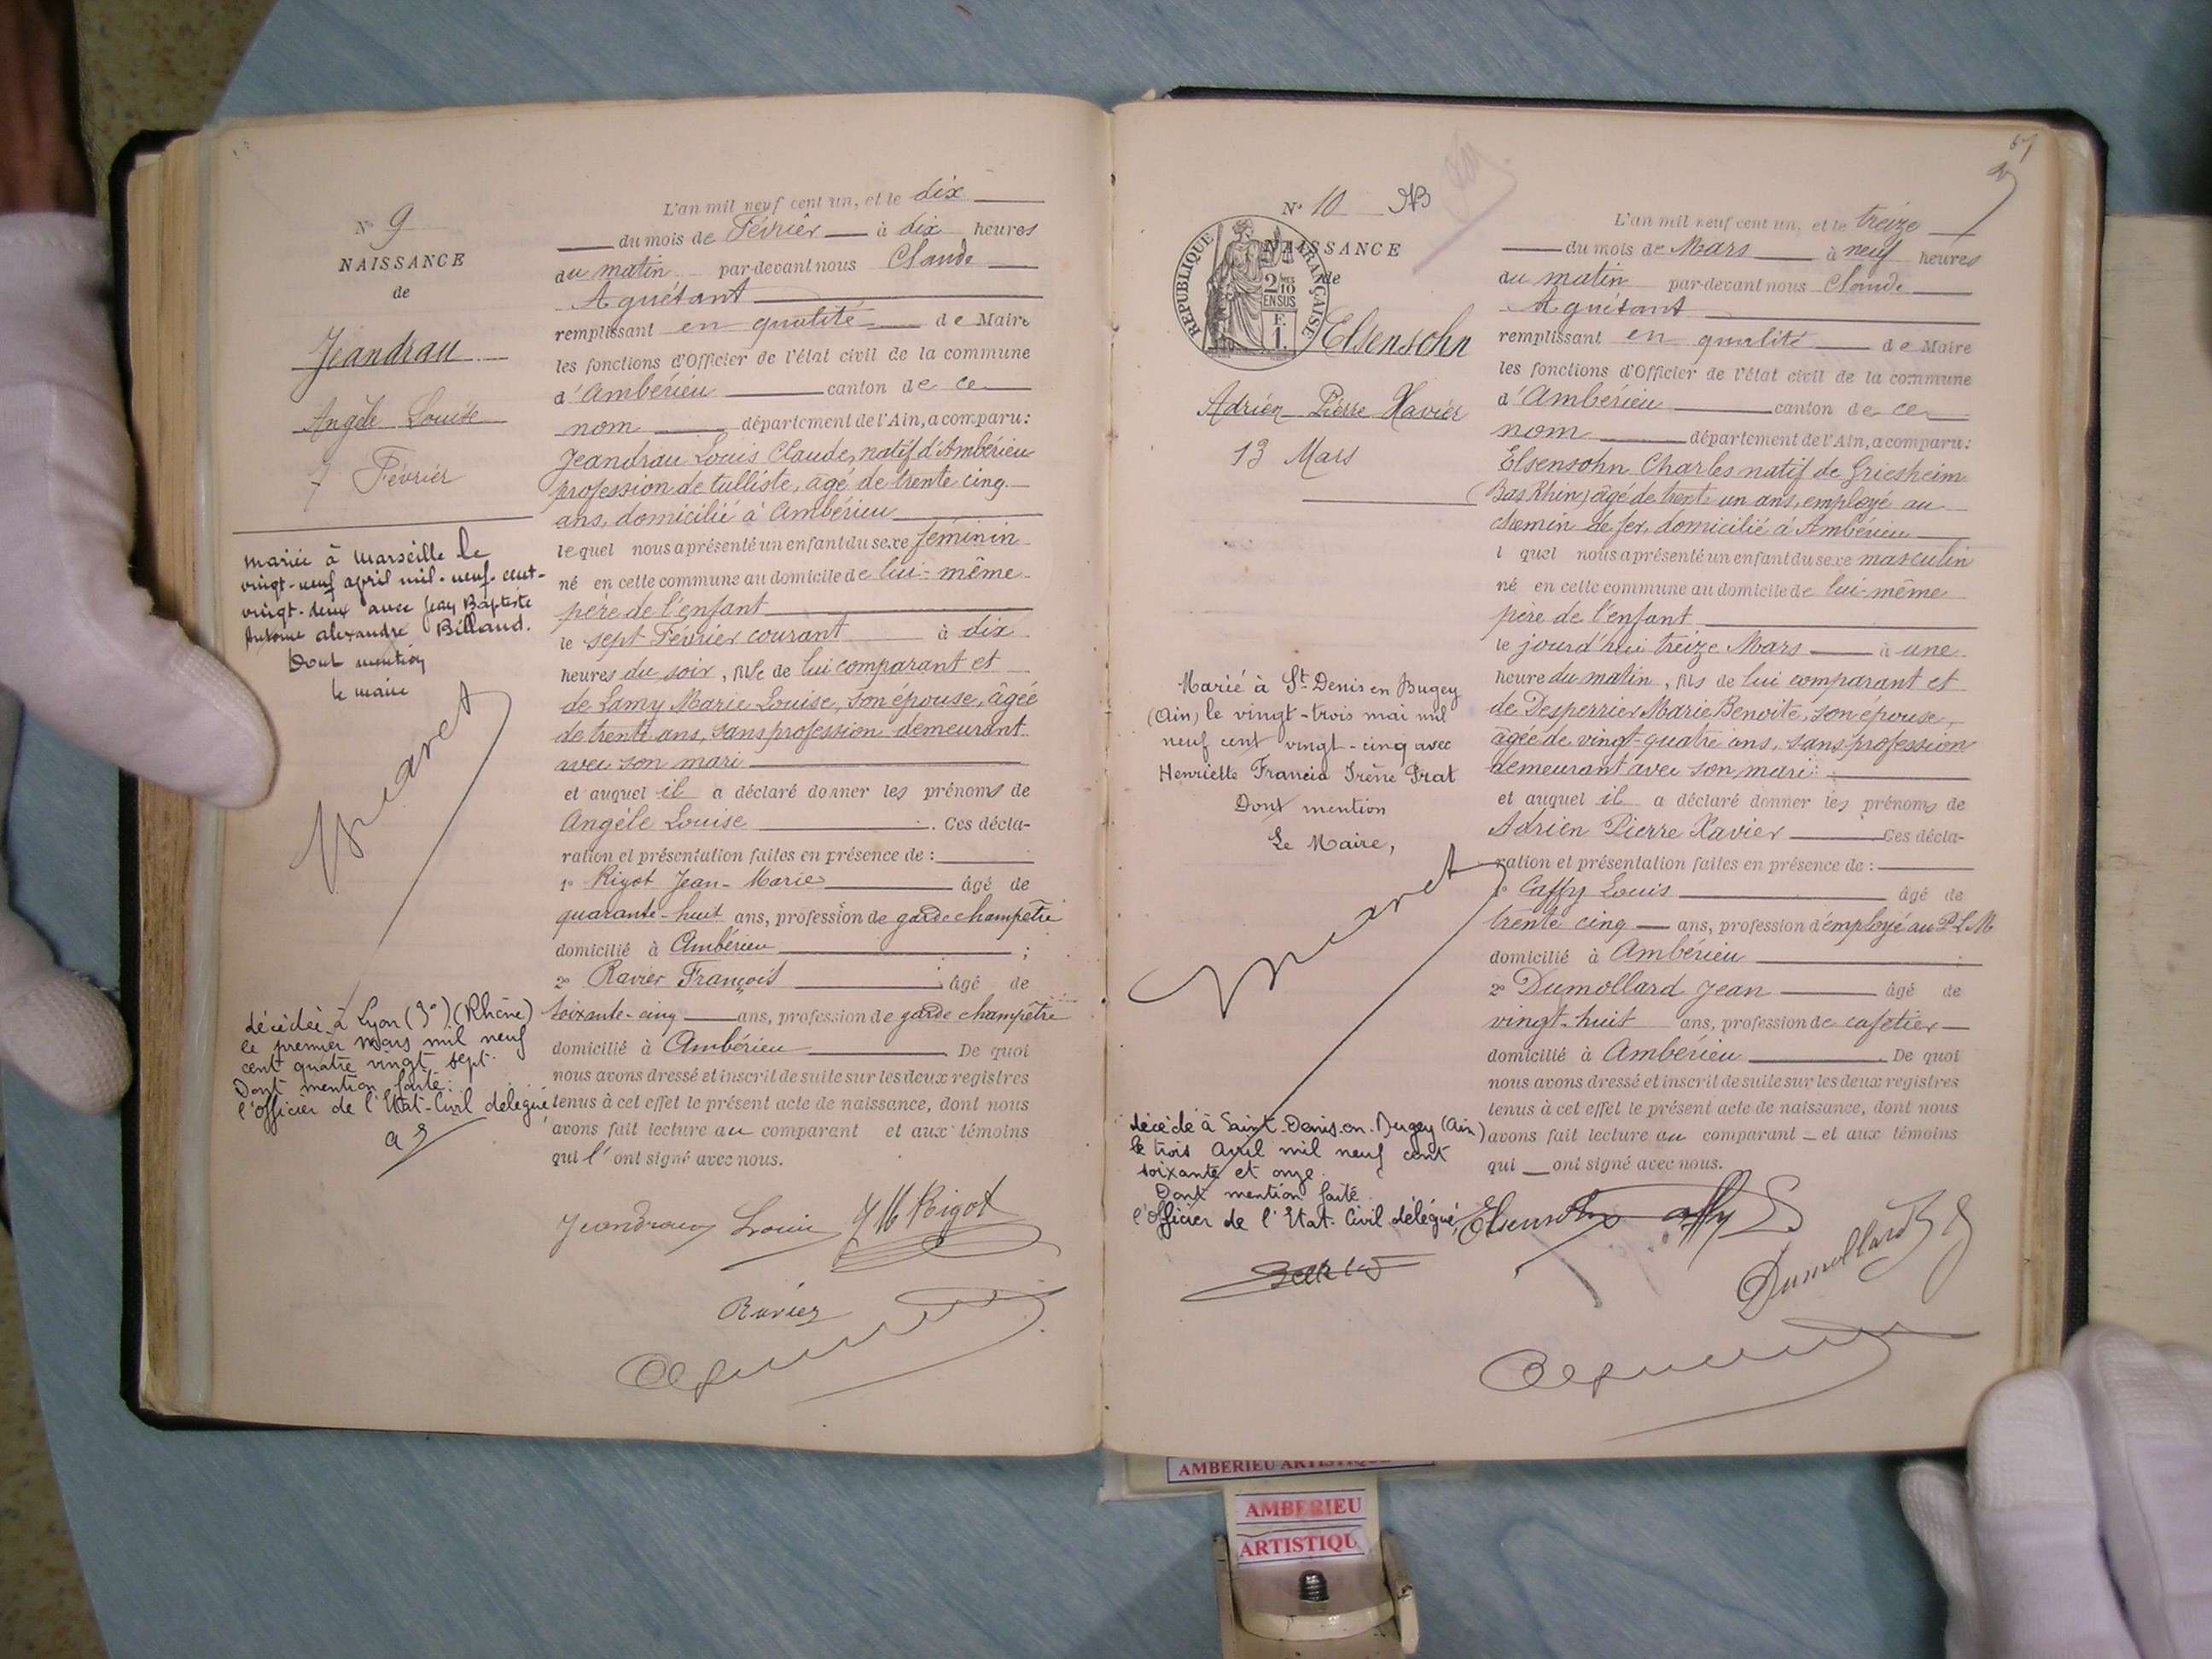 N° 9
NAISSANCE
de
Jeandrau
Angèle Louise
7 Février
mariée à Marseille le
vingt-neuf april mil-neuf-cent-
vingt-deux avec Jean Baptiste
Antoine alexandre Billaud.
Dont mention
le maire
décédée à Lyon (3°) (Rhône)
le premier mars mil neuf
cent quatre vingt sept.
Dont mention faite:
l'officier de l'Etat-Civil délégué
L'an mil neuf cent un, et le dix
du mois de Février à dix heures
du matin par-devant nous Claude
Aguétant
remplissant en qualité de Maire
les fonctions d'Officier de l'état civil de la commune
d'Ambérieu canton de ce
nom département de l'Ain, a comparu:
Jeandrau Louis Claude, natif d'Ambérieu
profession de tulliste, âgé de trente cinq
ans, domicilié à Ambérieu
lequel nous a présenté un enfant du sexe féminin
né en cette commune au domicile de lui-même
père de l'enfant
le sept Février courant à dix
heures du soir, fille de lui comparant et
de Lamy Marie Louise, son épouse, âgée
de trente ans, sans profession demeurant
avec son mari
et auquel il a déclaré donner les prénoms de
Angèle Louise . Ces décla-
ration et présentation faites en présence de :
1° Rigot Jean-Marie âgé de
quarante-huit ans, profession de garde champêtre
domicilié à Ambérieu ;
2° Ravier François âgé de
soixante-cinq ans, profession de garde champêtre
domicilié à Ambérieu . De quoi
nous avons dressé et inscrit de suite sur les deux registres
tenus à cet effet le présent acte de naissance, dont nous
avons fait lecture au comparant et aux témoins
qui l'ont signé avec nous.
Jeandrau Louis JM Rigot
Ravier
N° 10
NAISSANCE
de
RÉPUBLIQUE FRANÇAISE
2/10
EN SUS
F.
1.
Elsensohn
Adrien Pierre Xavier
13 Mars
Marié à St Denis en Bugey
(Ain) le vingt-trois mai mil
neuf cent vingt-cinq avec
Henriette Francia Irène Prat
Dont mention
Le Maire,
décédé à Saint-Denis-en-Bugey (Ain)
le trois Avril mil neuf cent
soixante et onze.
Dont mention faite.
l'Officier de l'Etat-Civil délégué,
L'an mil neuf cent un, et le treize
du mois de Mars à neuf heures
du matin par-devant nous Claude
Aguétant
remplissant en qualité de Maire
les fonctions d'Officier de l'état civil de la commune
d'Ambérieu canton de ce
nom département de l'Ain, a comparu:
Elsensohn Charles natif de Griesheim
(Bas Rhin) âgé de trente un ans, employé au
chemin de fer, domicilié à Ambérieu
l quel nous a présenté un enfant du sexe masculin
né en cette commune au domicile de lui-même
père de l'enfant
le jourd'hui treize Mars à une
heure du matin, fils de lui comparant et
de Desperrier Marie Benoite, son épouse,
âgée de vingt-quatre ans, sans profession
demeurant avec son mari
et auquel il a déclaré donner les prénoms de
Adrien Pierre Xavier Ces décla-
ration et présentation faites en présence de :
1° Caffy Louis âgé de
trente cinq ans, profession d'employé au P.L.M
domicilié à Ambérieu
2° Dumollard Jean âgé de
vingt-huit ans, profession de cafetier
domicilié à Ambérieu . De quoi
nous avons dressé et inscrit de suite sur les deux registres
tenus à cet effet le présent acte de naissance, dont nous
avons fait lecture au comparant et aux témoins
qui ont signé avec nous.
Elsensohn Caffy
Dumollard
AMBERIEU
AMBERIEU
ARTISTIQU